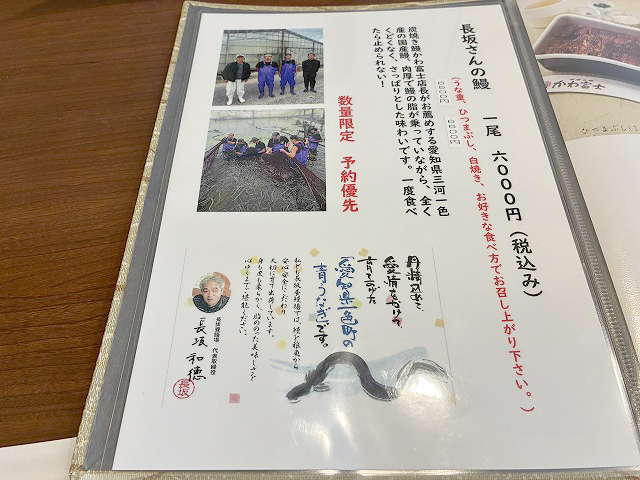 長坂さんの鰻　一尾　六000円（税込み）
（うな重、ひつまぶし、白焼き、お好きな食べ方でお召し上がり下さい。）
6600円
6600円
炭焼き鰻かわ富士店長がお薦めする愛知県三河一色
産の国産鰻。肉厚で鰻の脂が乗っていながら、全く
くどくなく、さっぱりとした味わいです。一度食べ
たら止められない！
数量限定　予約優先
丹精込めて、
愛情をかけて
育てあげた
「愛知県一色町の
青うなぎ」です。
私ども長坂養鰻場では、鰻を稚魚から
安心安全にこだわり
大切に育て出荷しています。
身も皮も柔らかく、脂ののった美味しさを
心ゆくまでご堪能ください。
長坂養鰻場　代表取締役
長坂 和徳
長坂
かわ富士
ひつまぶし